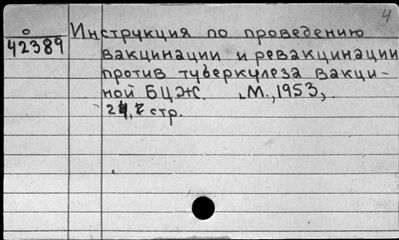 4
о
42389
Инструкция по проведению
вакцинации и ревакцинации
против туберкулеза вакци-
ной БЦЖ. М., 1953,
стр.